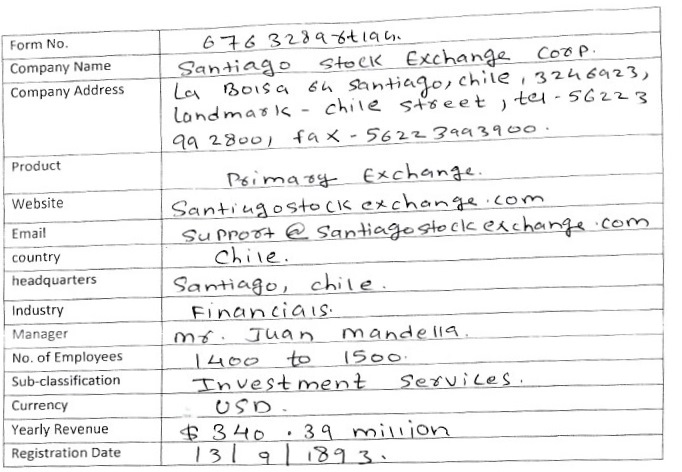 Form No. 6763289rtlgh.
Company Name Santiago Stock Exchange Corp.
Company Address La Bolsa 64 Santiago, chile, 3246923,
landmark - chile street, tel - 56223
99 2800, fax - 56223993900.
Product Primary Exchange.
Website Santiagostockexchange.com
Email Support @ Santiagostockexchange.com
country Chile.
headquarters Santiago, chile.
Industry Financials.
Manager mr. Juan mandella.
No. of Employees 1400 to 1500.
Sub-classification Investment Services.
Currency USD.
Yearly Revenue $ 340.39 million
Registration Date 13/9/1893.